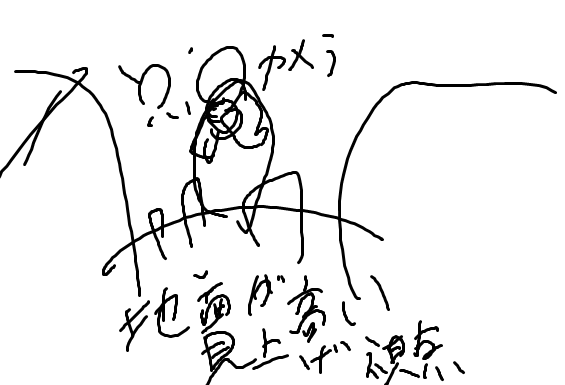 カメラ
地面が高い
見上げ視点